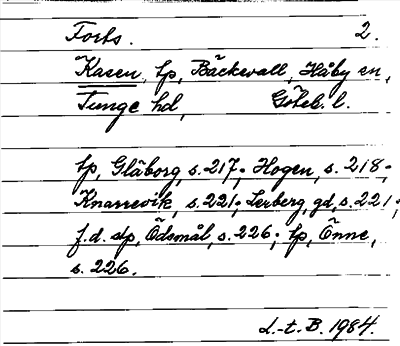 Forts. 2.
Kasen, tp, Bäckevall, Håby sn,
Tunge hd, Göteb. l.
tp, Glåborg, s. 217; Hogen, s. 218;
Knarrevik, s. 221; Lerberg, gd, s. 221;
f.d. stp, Ödsmål, s. 226; tp, Önne,
s. 226.
L.-t. B. 1984.